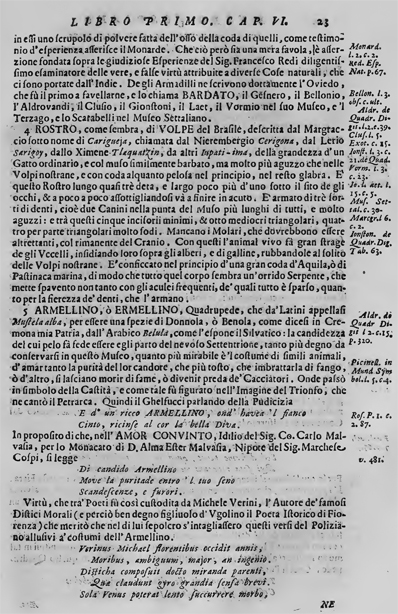 LIBRO PRIMO. CAP. VI. 23
in essi uno scrupolo di polvere fatta dell'osso della coda di quelli, come testimo-
nio d'esperienza asserisce il Monarde. Che ciò però sia una mera favola, lè asser-
zione fondata sopra le giudiziose Esperienze del Sig. Francesco Redi diligentis-
simo esaminatore delle vere, e false virtù attribuite a diverse Cose naturali, che
ci sono portate dall'Indie. Degli Armadilli ne scrivono dottamente l'Oviedo,
che fù il primo a favellarne, e lo chiama BARDATO, il Gesnero, il Bellonio,
l'Aldrovandi, il Clusio, il Gionstoni, il Laet, il Vormio nel suo Museo, e 'l
Terzago, e lo Scarabelli nel Museo Settaliano.
4 ROSTRO, come sembra, di VOLPE del Brasile, descritta dal Margrac-
cio sotto nome di Carigueja, chiamata dal Nierembergio Cerigona, dal Lerio
Sarigoy, dallo Ximene Tlaquatzin, da altri Iupati-ima, della grandezza d'un
Gatto ordinario, e col muso similmente barbato, ma molto più aguzzo che nelle
Volpi nostrane, e con coda alquanto pelosa nel principio, nel resto glabra. E'
questo Rostro lungo quasi trè deta, e largo poco più d'uno sotto il sito de gli
occhi, & a poco a poco assottigliandosi và a finire in acuto. E' armato di trè sor-
ti di denti, cioè due Canini nella punta del Muso più lunghi di tutti, e molto
aguzzi: e trà questi cinque incisori minimi, & otto mediocri triangolari, quat-
tro per parte triangolari molto sodi. Mancano i Molari, che dovrebbono essere
altrettanti, col rimanente del Cranio. Con questi l'animal vivo fà gran strage
de gli Vccelli, insidiando loro sopra gli alberi, e di galline, rubbandole al solito
delle Volpi nostrane. E' conficcato nel principio d'una gran coda d'Aquila, ò di
Pastinaca marina, di modo che tutto quel corpo sembra un'orrido Serpente, che
mette spavento non tanto con gli aculei frequenti, de' quali tutto è sparso, quan-
to per la fierezza de' denti, che l'armano.
5 ARMELLINO, ò ERMELLINO, Quadrupede, che da' Latini appellasi
Mustela alba, per essere una spezie di Donnola, ò Benola, come dicesi in Cre-
mona mia Patria, dall'Arabico Belula, come l'espone il Silvatico: la candidezza
del cui pelo fà fede essere egli parto del nevoso Settentrione, tanto più degno da
conservarsi in questo Museo, quanto più mirabile è 'l costume di simili animali,
d'amar tanto la purità del lor candore, che più tosto, che imbrattarla di fango,
ò d'altro, si lasciano morir di fame, ò divenir preda de' Cacciatori. Onde passò
in simbolo della Castità, e come tale fù figurato nell'Imagine del Trionfo, che
ne cantò il Petrarca. Quindi il Ghelfucci parlando della Pudicizia
E d' un ricco ARMELLINO, ond' havea 'l fianco
Cinto, ricinse al cor la bella Diva.
In proposito di che, nell' AMOR CONVINTO, Idilio del Sig. Co. Carlo Mal-
vasia, per lo Monacato di D. Alma Ester Malvasia, Nipote del Sig. Marchese
Cospi, si legge
Di candido Armellino
Move la puritade entro 'l tuo seno
Scandescenze, e furori.
Virtù, che trà' Poeti fù così custodita da Michele Verini, l'Autore de' famosi
Distici Morali (e perciò ben degno figliuolo d'Vgolino il Poeta Istorico di Fio-
renza) che meritò che nel di lui sepolcro s'intagliassero questi versi del Polizia-
no allusivi a' costumi dell'Armellino.
Verinus Michael florentibus occidit annis,
Moribus, ambiguum, major, an ingenio.
Disticha composuit docto miranda parenti,
Quæ claudunt gyro grandia sensa brevi.
Sola Venus poterat lento succurrere morbo,
NE
Monard.
l. 2. c. 2.
Red. Esp.
Nat. p. 67.
Bellon. l. 3.
obs. c. ult.
Aldr. de
Quadr. Di-
git. l. 2. c. 39.
Clus. l. 5.
Exot. c. 15.
Jonst. l. 3. c.
21. de Quad.
Vorm. l. 3.
c. 23.
Io. l. aet. l.
15. c. 5.
Mus. Set-
tal. c. 39.
Margrel 6.
c. 2.
Ionston. de
Quadr. Dig.
Tab. 63.
Aldr. de
Quadr Di-
git l 2. c. 15.
p. 320.
Picinell. in
Mund Sym
bol. l. 5. c. 4.
Ros. P. 1. c.
2. 87.
v. 481.